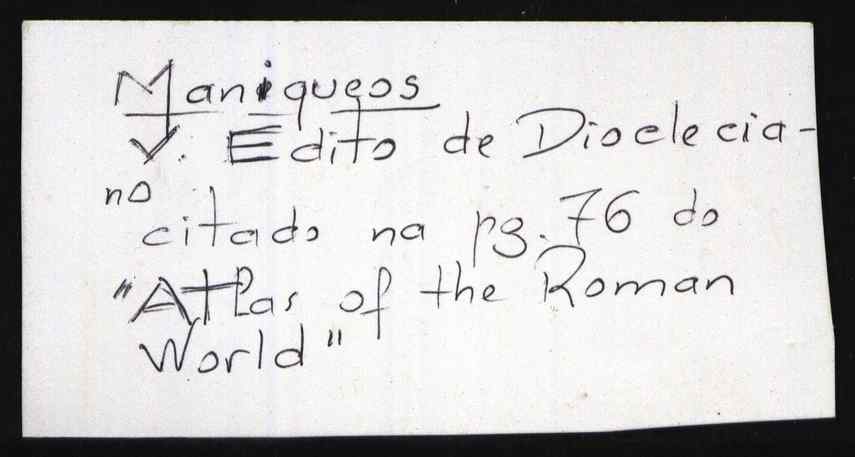 Maniqueos
V. Edito de Dioclecia-
no
citado na pg. 76 do
"Atlas of the Roman
World"